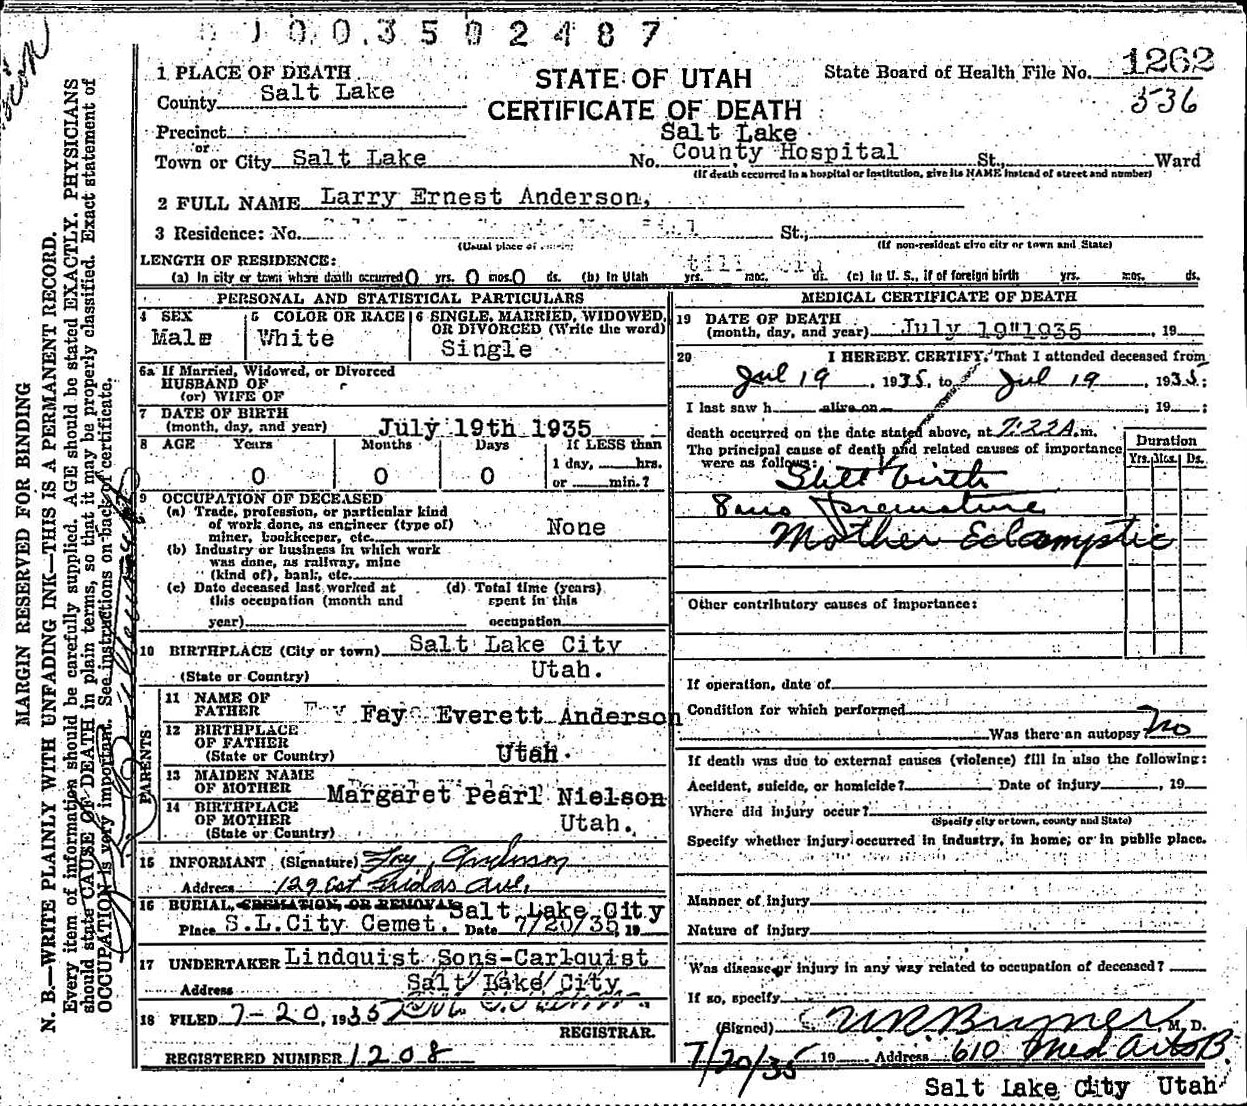 0 1 0 0 3 5 0 2 4 8 7
1 PLACE OF DEATH
County Salt Lake
STATE OF UTAH
CERTIFICATE OF DEATH
State Board of Health File No. 1262
536
Precinct
or
Town or City Salt Lake
Salt Lake
No. County Hospital St., Ward
(If death occurred in a hospital or institution, give its NAME instead of street and number)
2 FULL NAME Larry Ernest Anderson,
3 Residence: No. St.,
(Usual place of
(If non-resident give city or town and State)
LENGTH OF RESIDENCE:
(a) In city or town where death occurred 0 yrs. 0 mos. 0 ds. (b) In Utah yrs. mos. ds. (c) In U. S., if of foreign birth yrs. mos. ds.
PERSONAL AND STATISTICAL PARTICULARS
4 SEX
Male
5 COLOR OR RACE
White
6 SINGLE, MARRIED, WIDOWED,
OR DIVORCED (Write the word)
Single
6a If Married, Widowed, or Divorced
HUSBAND OF
(or) WIFE OF
7 DATE OF BIRTH
(month, day, and year) July 19th 1935
8 AGE Years Months Days If LESS than
0 0 0 1 day, hrs.
or min.?
9 OCCUPATION OF DECEASED
(a) Trade, profession, or particular kind
of work done, as engineer (type of)
miner, bookkeeper, etc. None
(b) Industry or business in which work
was done, as railway, mine
(kind of), bank, etc.
(c) Date deceased last worked at
this occupation (month and
year)
(d) Total time (years)
spent in this
occupation
10 BIRTHPLACE (City or town) Salt Lake City
(State or Country) Utah.
PARENTS
11 NAME OF
FATHER Fay Everett Anderson
12 BIRTHPLACE
OF FATHER
(State or Country) Utah.
13 MAIDEN NAME
OF MOTHER Margaret Pearl Nielson
14 BIRTHPLACE
OF MOTHER
(State or Country) Utah.
15 INFORMANT (Signature) Fay Anderson
Address 129 Ave.
16 BURIAL, CREMATION, OR REMOVAL Salt Lake City
Place S.L.City Cemet. Date 7/20/35, 19
17 UNDERTAKER Lindquist Sons-Carlquist
Address Salt Lake City
18 FILED 7-20, 1935
REGISTRAR.
REGISTERED NUMBER 1208
MEDICAL CERTIFICATE OF DEATH
19 DATE OF DEATH
(month, day, and year) July 19" 1935, 19
20 I HEREBY CERTIFY, That I attended deceased from
Jul 19, 1935, to Jul 19, 1935;
I last saw h alive on , 19 ;
death occurred on the date stated above, at 7:22 A.m.
The principal cause of death and related causes of importance
were as follows:
Duration
Yrs. Mos. Ds.
Still birth
8 mo Premature
Mother Eclamptic
Other contributory causes of importance:
If operation, date of
Condition for which performed
Was there an autopsy No
If death was due to external causes (violence) fill in also the following:
Accident, suicide, or homicide? Date of injury , 19
Where did injury occur?
(Specify city or town, county and State)
Specify whether injury occurred in industry, in home, or in public place.
Manner of injury
Nature of injury
Was disease or injury in any way related to occupation of deceased?
If so, specify
(Signed) M. D.
7/20/35 19 Address 610 Med Arts B.
Salt Lake City Utah
MARGIN RESERVED FOR BINDING
N. B.—WRITE PLAINLY WITH UNFADING INK—THIS IS A PERMANENT RECORD.
Every item of information should be carefully supplied. AGE should be stated EXACTLY. PHYSICIANS
should state CAUSE OF DEATH in plain terms, so that it may be properly classified. Exact statement of
OCCUPATION is very important. See instructions on back of certificate.